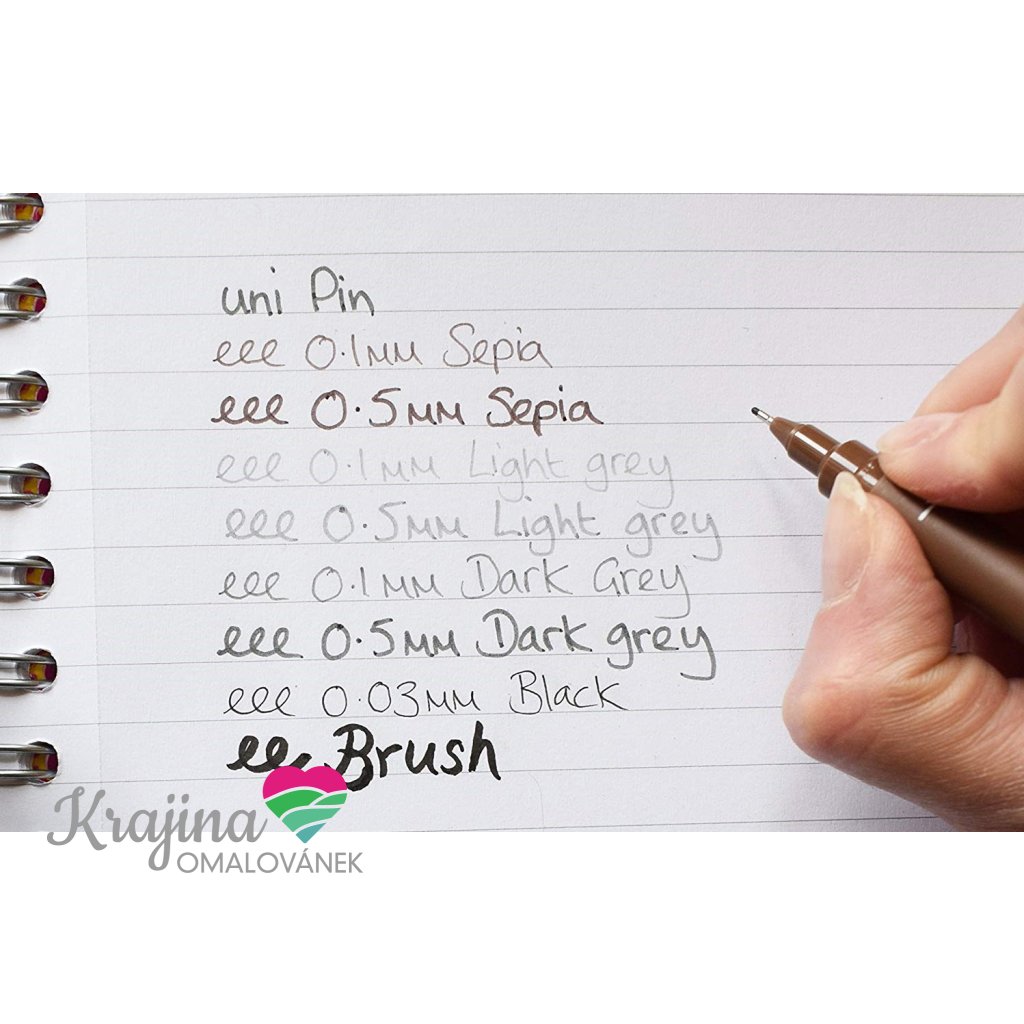 uni Pin
eee 0.1mm Sepia
eee 0.5mm Sepia
eee 0.1mm Light grey
eee 0.5mm Light grey
eee 0.1mm Dark Grey
eee 0.5mm Dark grey
eee 0.03mm Black
ee Brush
Krajina
OMALOVÁNEK